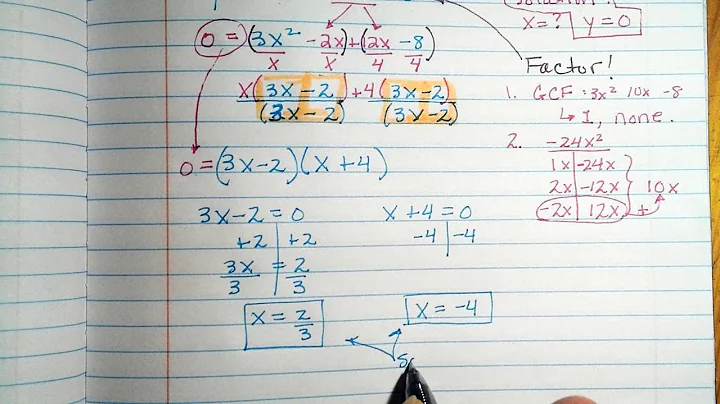 0 = (3x² - 2x)+(12x - 8)
x x 4 4
x(3x - 2) + 4(3x - 2)
(3x - 2) (3x - 2)
0 = (3x - 2)(x + 4)
3x - 2 = 0
+2 | +2
3x = 2
3 3
x = 2/3
x + 4 = 0
-4 | -4
x = -4
x = ? y = 0
Factor!
1. GCF : 3x² 10x -8
↳ 1, none.
2. -24x²
1x | -24x
2x | -12x } 10x
-2x | 12x +